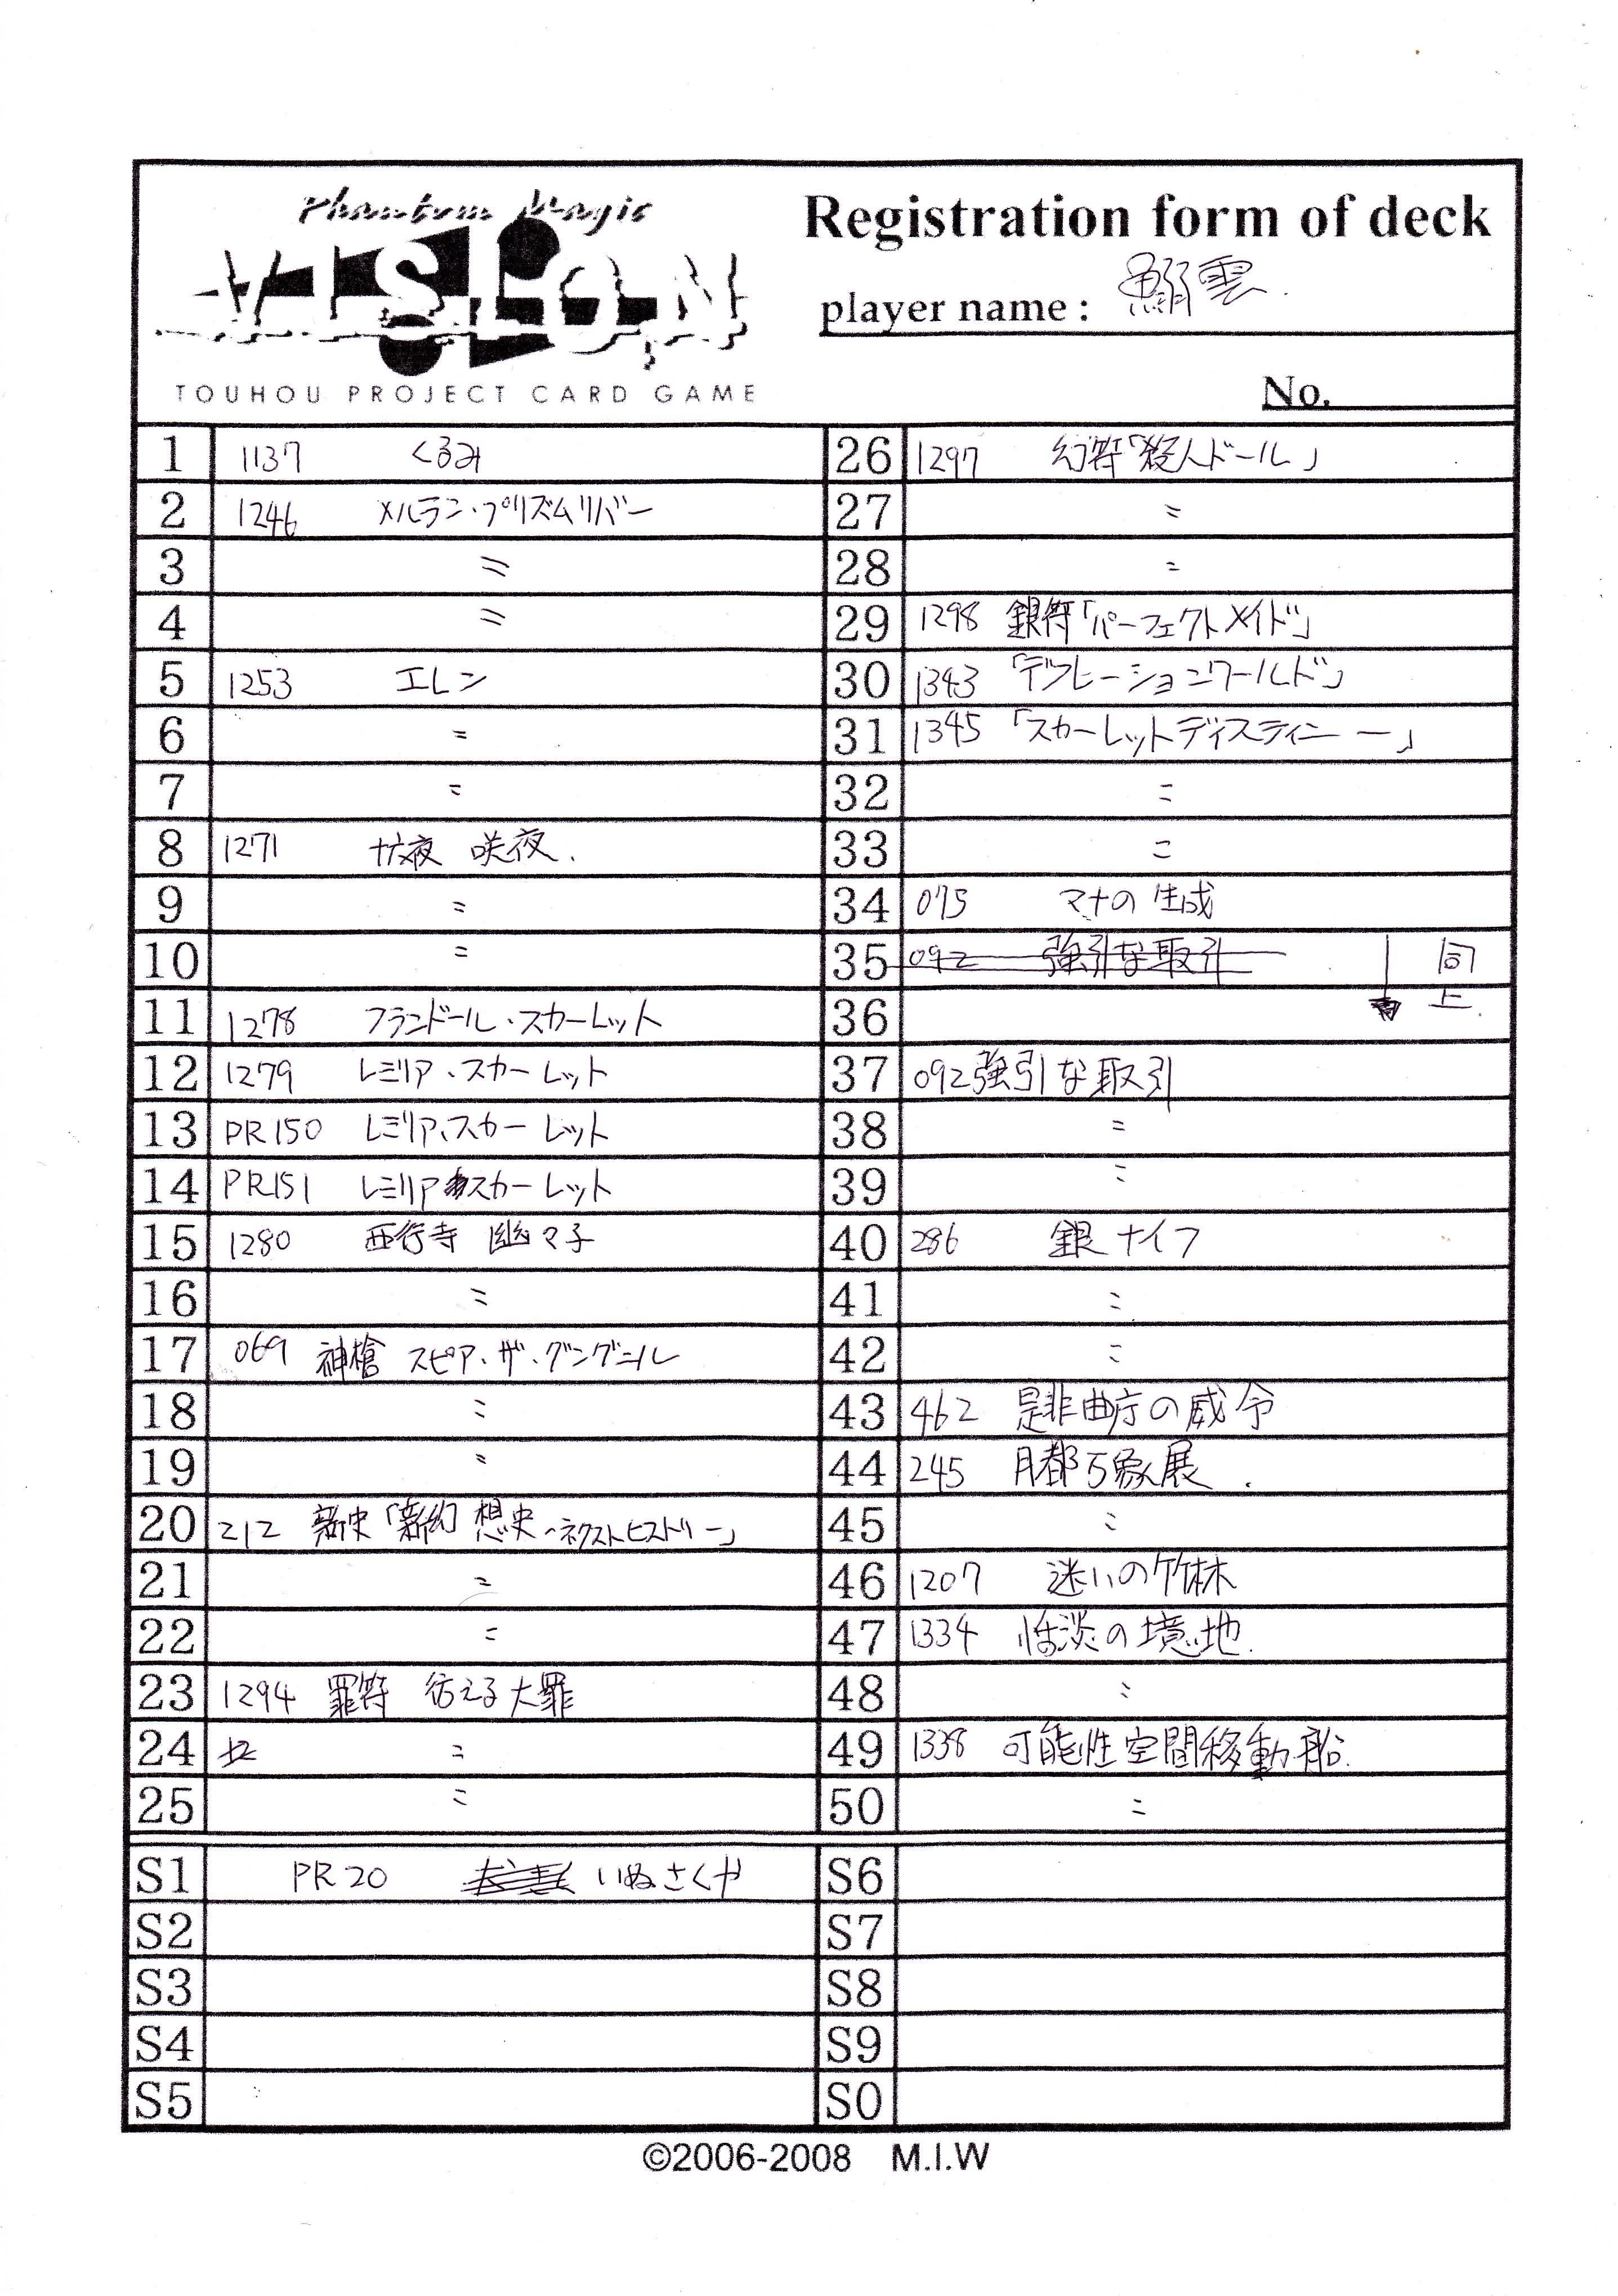 Phantom Magic
VISION
TOUHOU PROJECT CARD GAME
Registration form of deck
player name : 鰯雲
No.
1 1137 くるみ
2 1246 メルラン・プリズムリバー
3 〃
4 〃
5 1253 エレン
6 〃
7 〃
8 1271 十六夜 咲夜
9 〃
10 〃
11 1278 フランドール・スカーレット
12 1279 レミリア・スカーレット
13 PR150 レミリア・スカーレット
14 PR151 レミリア スカーレット
15 1280 西行寺 幽々子
16 〃
17 069 神槍 スピア・ザ・グングニル
18 〃
19 〃
20 212 新史「新幻想史 -ネクストヒストリー」
21 〃
22 〃
23 1294 罪符 彷える大罪
24 〃
25 〃
26 1297 幻符「殺人ドール」
27 〃
28 〃
29 1298 銀符「パーフェクトメイド」
30 1343 「デフレーションワールド」
31 1345 「スカーレットディスティニー」
32 〃
33 〃
34 075 マナの生成
35 092 強引な取引 同上
36
37 092 強引な取引
38 〃
39 〃
40 286 銀ナイフ
41 〃
42 〃
43 462 是非曲庁の威令
44 245 月都万象展
45 〃
46 1207 迷いの竹林
47 1334 恬淡の境地
48 〃
49 1338 可能性空間移動船
50 〃
S1 PR20 いぬさくや
S2
S3
S4
S5
S6
S7
S8
S9
S0
©2006-2008 M.I.W